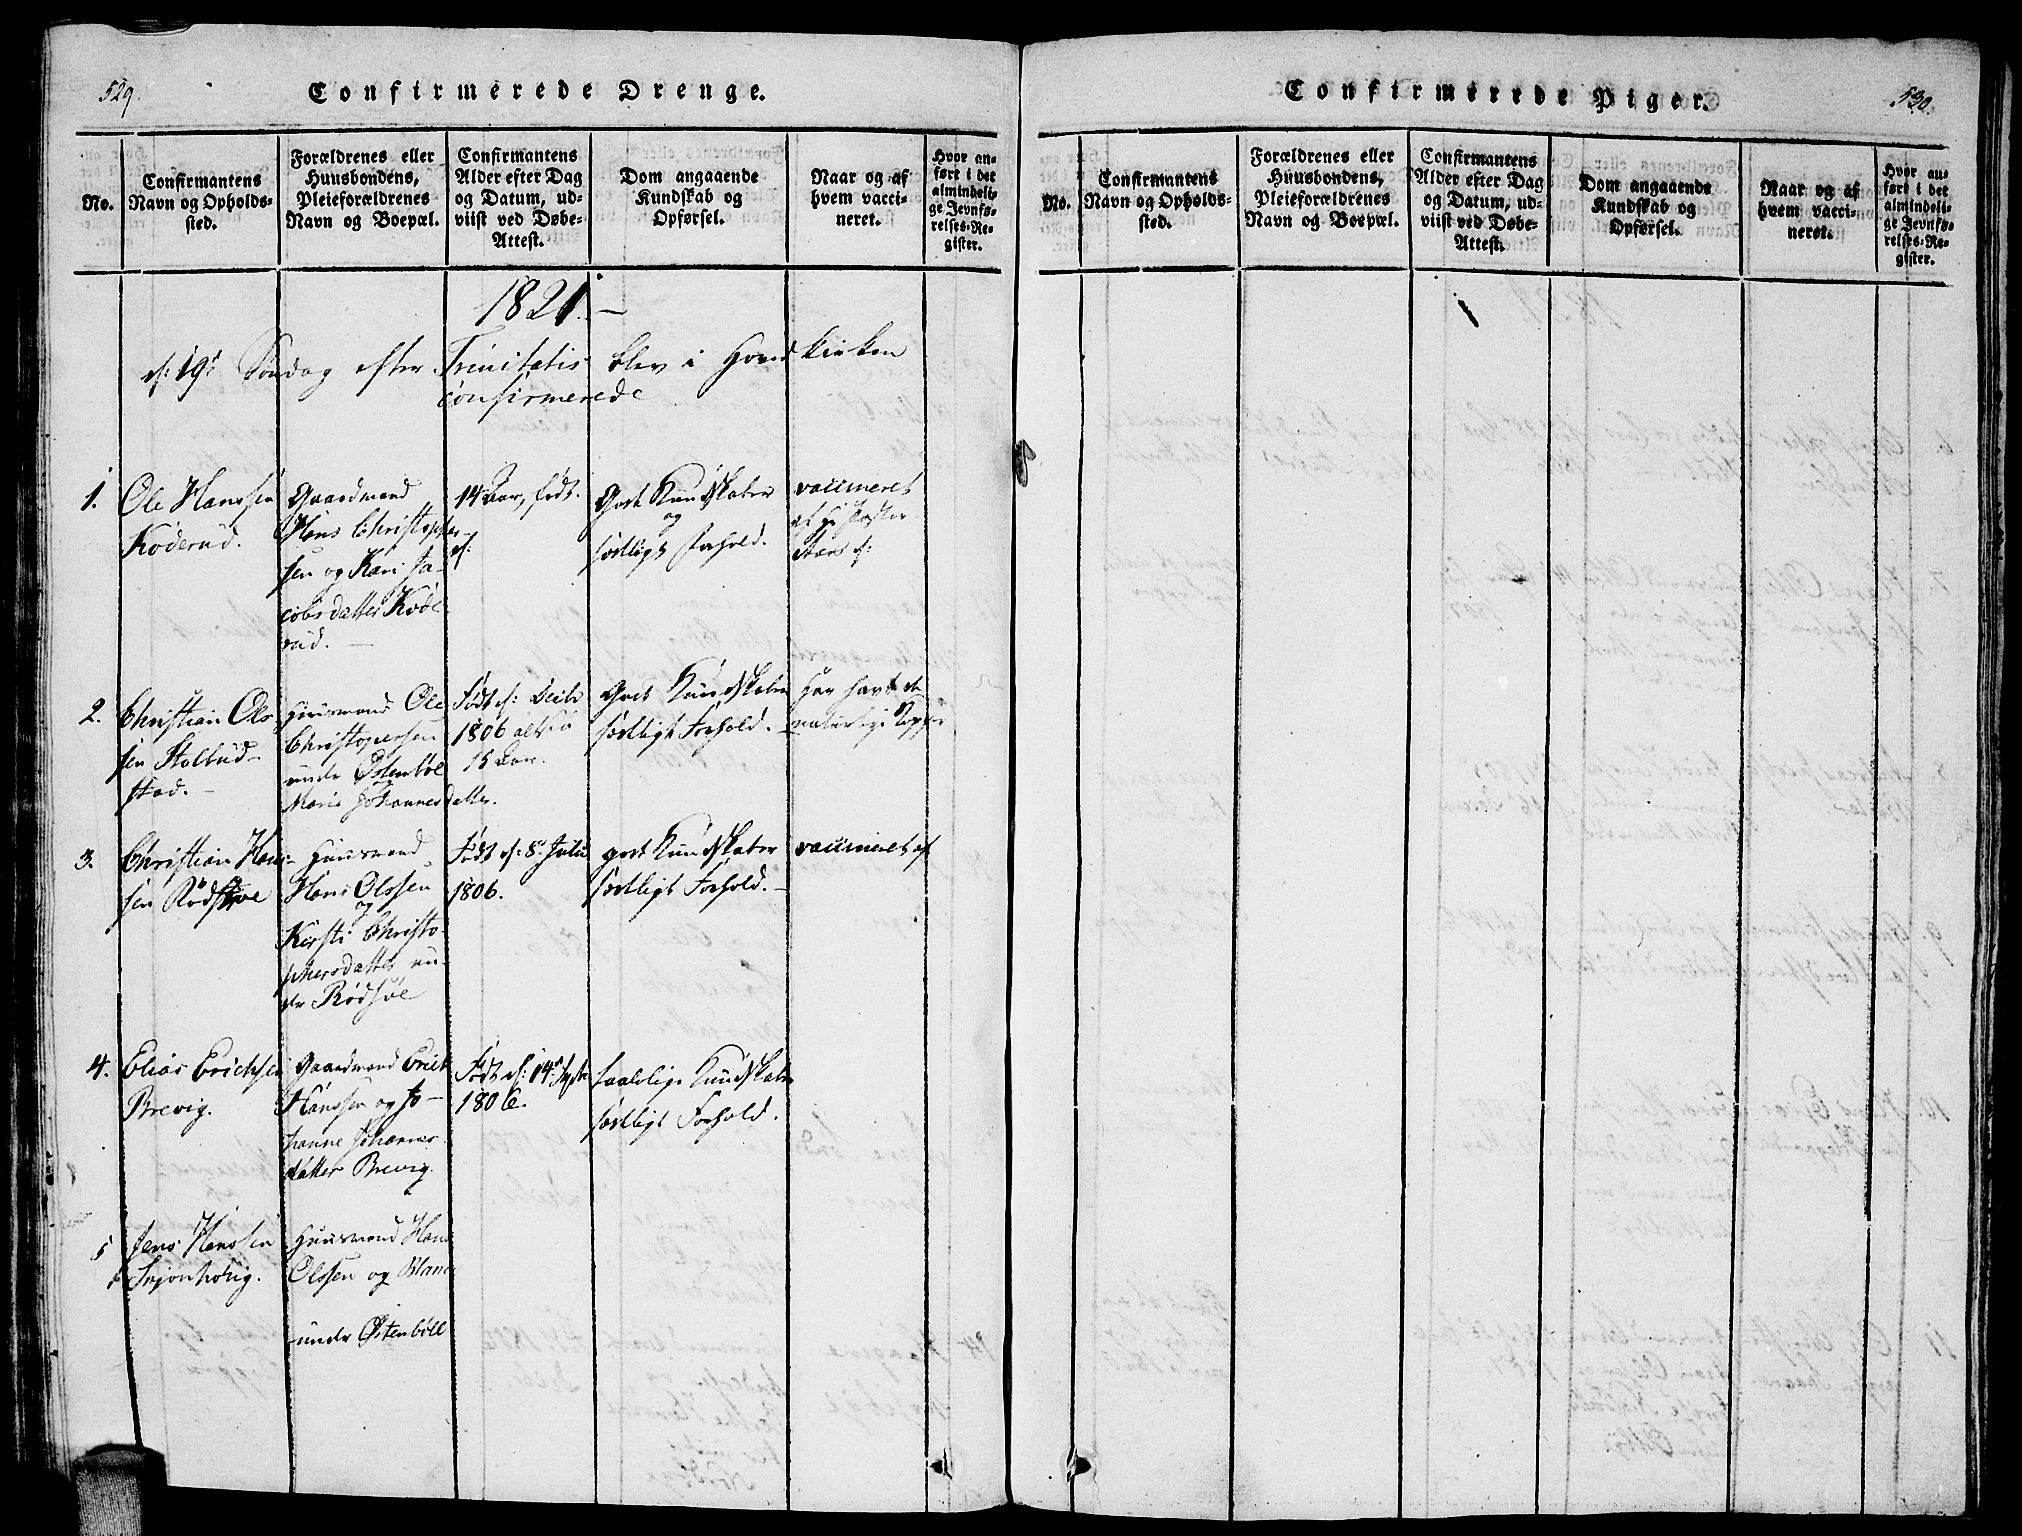 529.
Confirmerede Drenge.
No.
Confirmantens
Navn og Opholds-
sted.
Forældrenes eller
Huusbondens,
Pleieforældrenes
Navn og Boepæl.
Confirmantens
Alder efter Dag
og Datum, ud-
viist ved Døbe-
Attest.
Dom angaaende
Kundskab og
Opførsel.
Naar og af
hvem vacci-
neret.
Hvor an-
ført i det
almindeli-
ge Jevnfø-
relses-Re-
gister.
1821.
d: 19d Søndag efter Trinitatis blev i Hovedkirken
confirmerede
1.
Ole Hanssen
Köderud.
Gaardmand
Hans Christopher-
sen og Kari Ja-
cobsdatter Köde-
rud.
14 Aar, født
d:
Godt Kundskaber
og
sædeligt Forhold.
vaccineret
af
d:
2.
Christian Ols
sen Stolbud-
stad.
Huusmand Ole
Christopersen
under Østenböl
og
Marie Johannesdatter.
Født d: Decbr
1806 altsaa
15 Aar.
Godt Kundskaber
sædeligt Forhold.
Har havt de
naturlige Kopper
3.
Christian Han-
sen Rødsøe
Huusmand
Hans Olssen
og
Kirsti Christo-
phersdatter un-
der Rødsöe
Født d: 8d Julii
1806.
godt Kundskaber
sædeligt Forhold.
vaccineret af
4.
Elias Erichsen
Brevig.
Gaardmand Erich
Hanssen og Jo-
hanne Johannes
datter Brevig.
Født d: 14d Septr
1806.
maadelige Kundskaber
sædeligt Forhold.
5
Jens Hanssen
Huusmand Hans
Olssen og
under Østenböll
Confirmerede Piger.
530.
No.
Confirmantens
Navn og Opholds-
sted.
Forældrenes eller
Huusbondens,
Pleieforældrenes
Navn og Boepæl.
Confirmantens
Alder efter Dag
og Datum, ud-
viist ved Døbe-
Attest.
Dom angaaende
Kundskab og
Opførsel.
Naar og af
hvem vacci-
neret.
Hvor an-
ført i det
almindeli-
ge Jevnfø-
relses-Re-
gister.